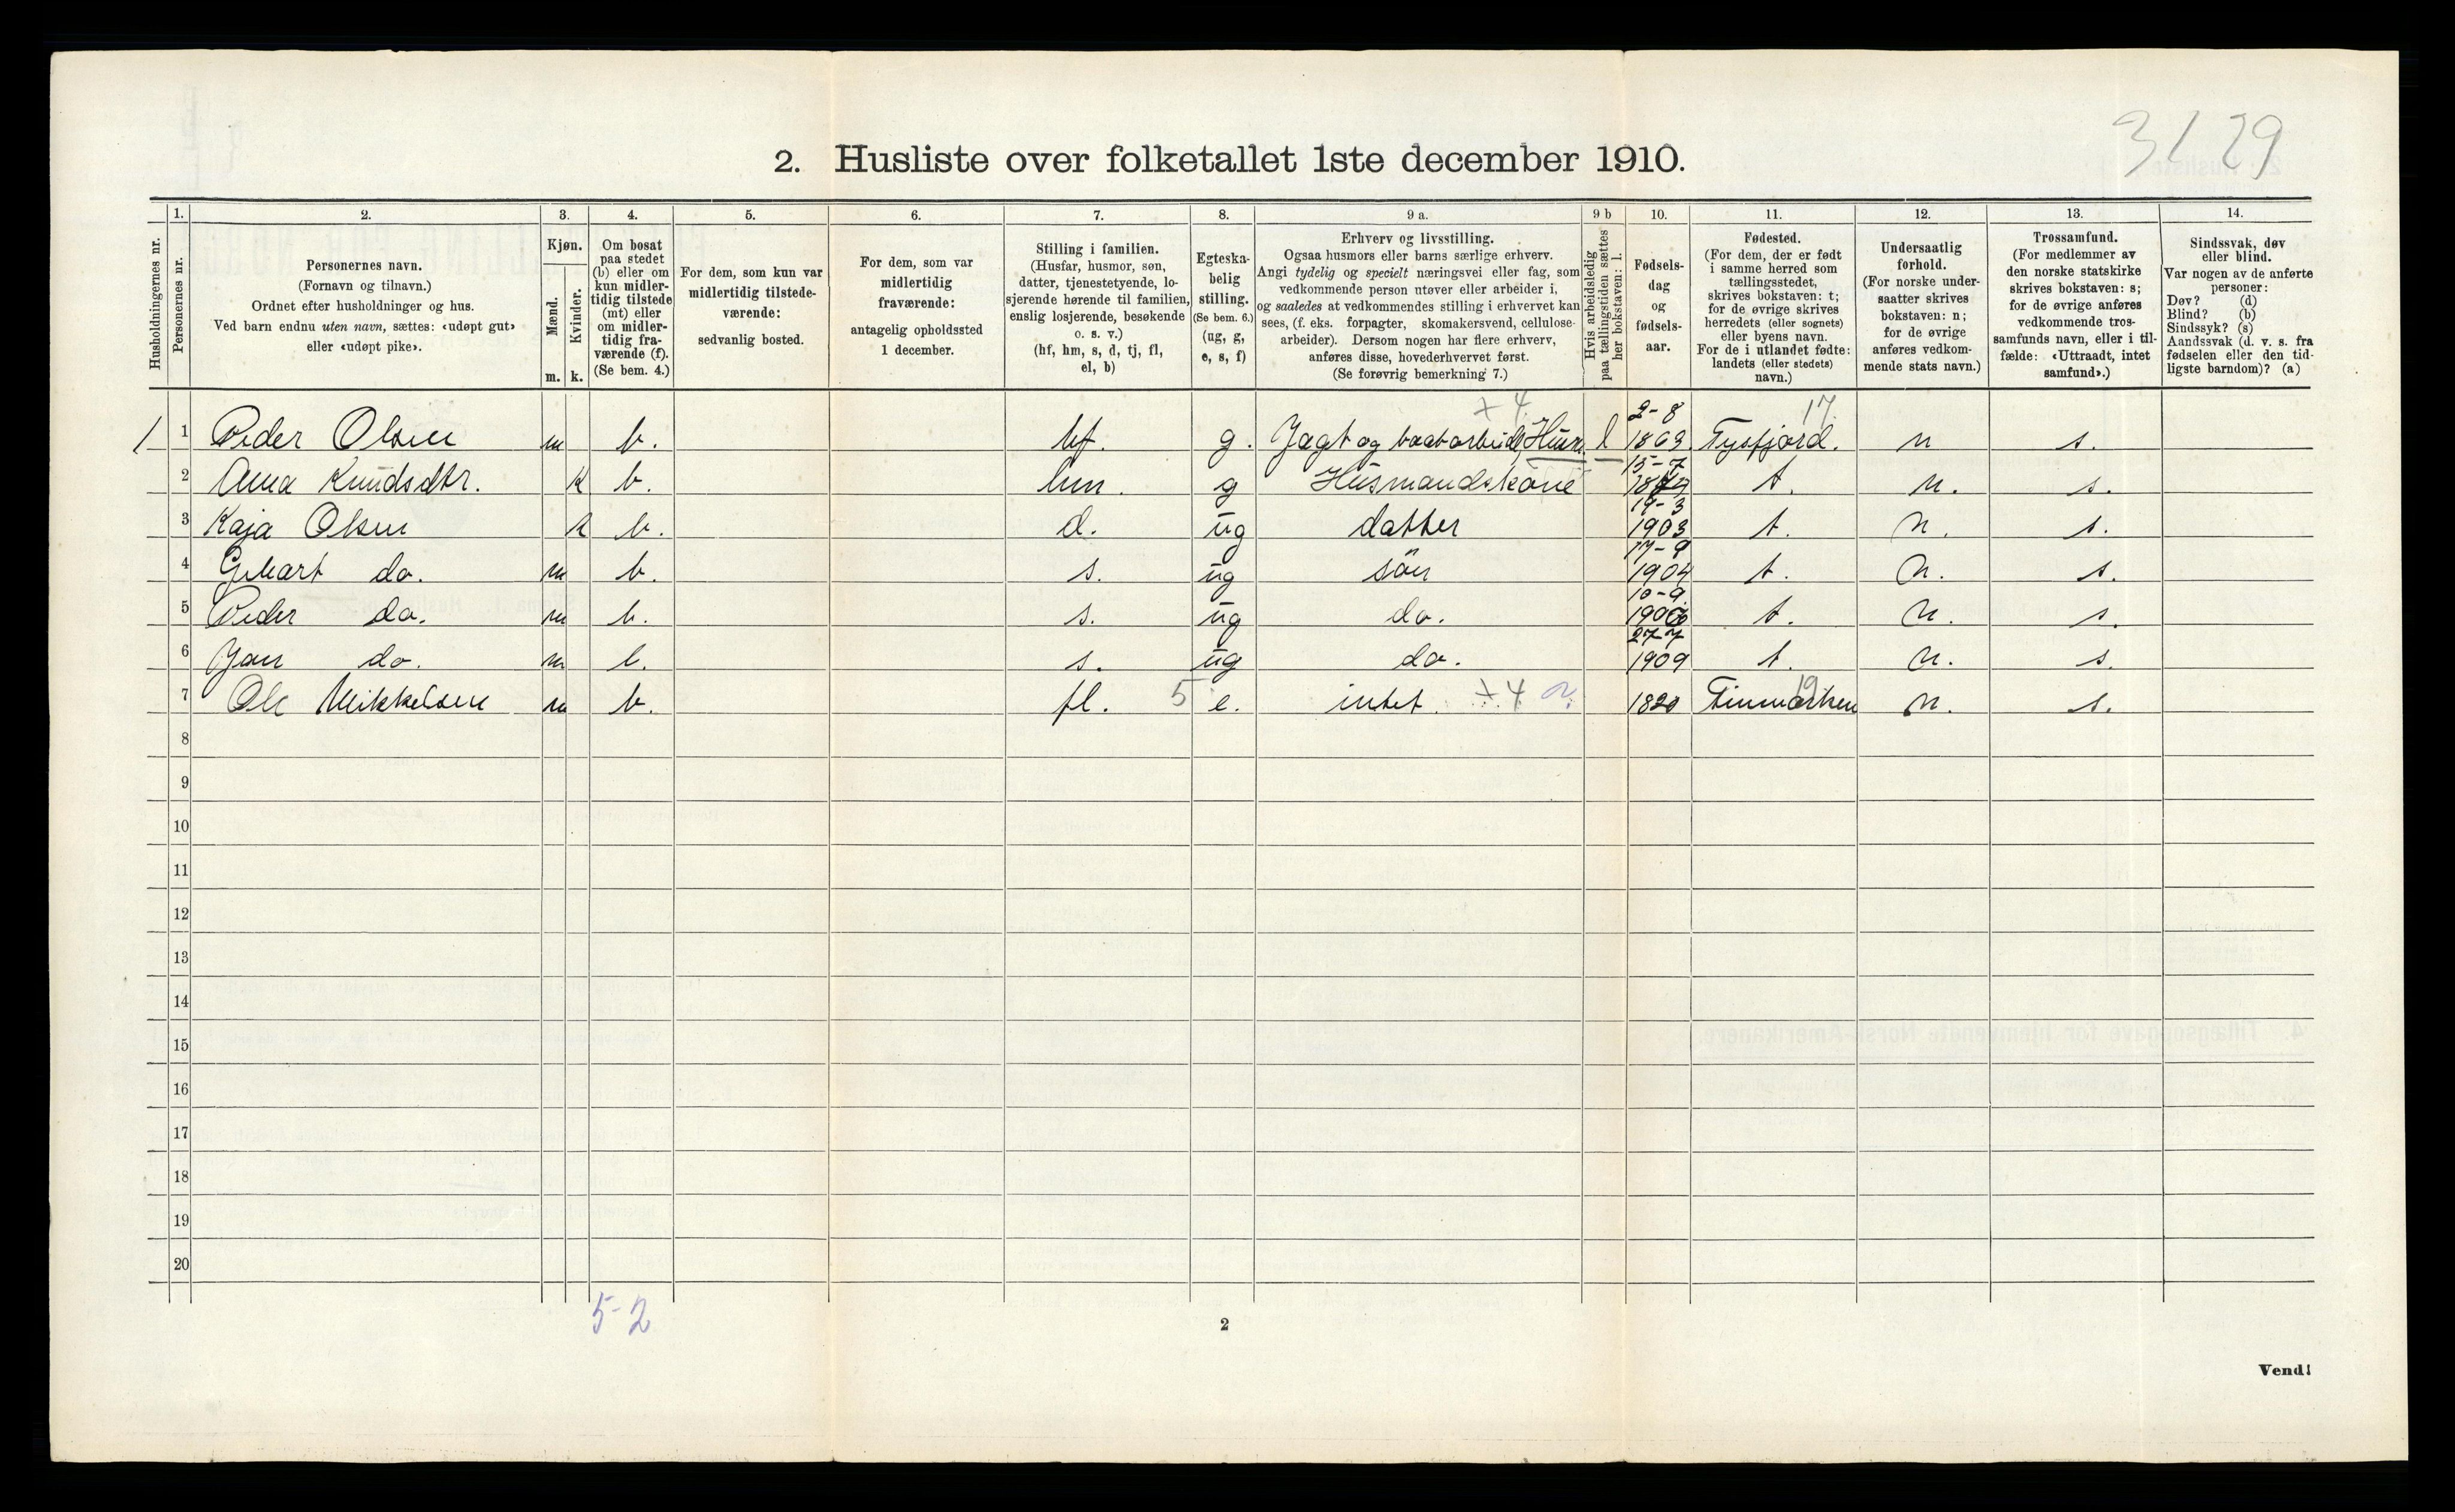 31 29
2. Husliste over folketallet 1ste december 1910.
Husholdningernes nr.
1.
Personernes nr.
2.
Personernes navn.
(Fornavn og tilnavn.)
Ordnet efter husholdninger og hus.
Ved barn endnu uten navn, sættes: «udøpt gut»
eller «udøpt pike».
3.
Kjøn.
Mænd.
Kvinder.
m. k.
4.
Om bosat
paa stedet
(b) eller om
kun midler-
tidig tilstede
(mt) eller
om midler-
tidig fra-
værende (f).
(Se bem. 4.)
5.
For dem, som kun var
midlertidig tilstede-
værende:
sedvanlig bosted.
6.
For dem, som var
midlertidig
fraværende:
antagelig opholdssted
1 december.
7.
Stilling i familien.
(Husfar, husmor, søn,
datter, tjenestetyende, lo-
sjerende hørende til familien,
enslig losjerende, besøkende
o. s. v.)
(hf, hm, s, d, tj, fl,
el, b)
8.
Egteska-
belig
stilling.
(Se bem. 6.)
(ug, g,
e, s, f)
9 a.
Erhverv og livsstilling.
Ogsaa husmors eller barns særlige erhverv.
Angi tydelig og specielt næringsvei eller fag, som
vedkommende person utøver eller arbeider i,
og saaledes at vedkommendes stilling i erhvervet kan
sees, (f. eks. forpagter, skomakersvend, cellulose-
arbeider). Dersom nogen har flere erhverv,
anføres disse, hovederhvervet først.
(Se forøvrig bemerkning 7.)
9 b
Hvis arbeidsledig
paa tællingstiden sættes
her bokstaven: l.
10.
Fødsels-
dag
og
fødsels-
aar.
11.
Fødested.
(For dem, der er født
i samme herred som
tællingsstedet,
skrives bokstaven: t;
for de øvrige skrives
herredets (eller sognets)
eller byens navn.
For de i utlandet fødte:
landets (eller stedets)
navn.)
12.
Undersaatlig
forhold.
(For norske under-
saatter skrives
bokstaven: n;
for de øvrige
anføres vedkom-
mende stats navn.)
13.
Trossamfund.
(For medlemmer av
den norske statskirke
skrives bokstaven: s;
for de øvrige anføres
vedkommende tros-
samfunds navn, eller i til-
fælde: «Uttraadt, intet
samfund».)
14.
Sindssvak, døv
eller blind.
Var nogen av de anførte
personer:
Døv? (d)
Blind? (b)
Sindssyk? (s)
Aandssvak (d. v. s. fra
fødselen eller den tid-
ligste barndom)? (a)
+ 4 2-8 17
1 1 Peder Olsen m b. hf. g. Jagt og baatarbeide, Husm. l 1863 Tysfjord. n s.
15-7
2 Anna Knudsdtr. k b. hm. g Husmandskone t. n. s.
19-3
3 Kaja Olsen k b. d. ug datter 1903 t. n. s.
17-9
4 do. m b. s. ug sön 1904 t. n. s.
10-9
5 Peder do. m b. s. ug do. t. n. s.
27-7
6 Jan do. m b. s. ug do. 1909 t. n. s.
19
7 Ole Mikkelsen m b. fl. 5 e. intet + 4 1820 Finmarken n. s.
8
9
10
11
12
13
14
15
16
17
18
19
20
5-2
2
Vend!